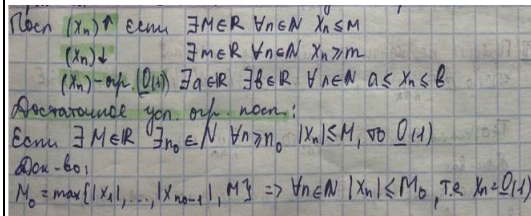 Посл (xₙ)↑ если ∃M∈ℝ ∀n∈ℕ xₙ≤M
(xₙ)↓ ∃m∈ℝ ∀n∈ℕ xₙ≥m
(xₙ)-огр. O(1) ∃a∈ℝ ∃b∈ℝ ∀n∈ℕ a≤xₙ≤b
Достаточное усл. огр. посл:
Если ∃M∈ℝ ∃n₀∈ℕ ∀n≥n₀ |xₙ|≤M, то O(1)
Док-во:
M₀=max{|x₁|,...,|xₙ₀₋₁|, M} => ∀n∈ℕ |xₙ|≤M₀, т.е. xₙ=O(1)